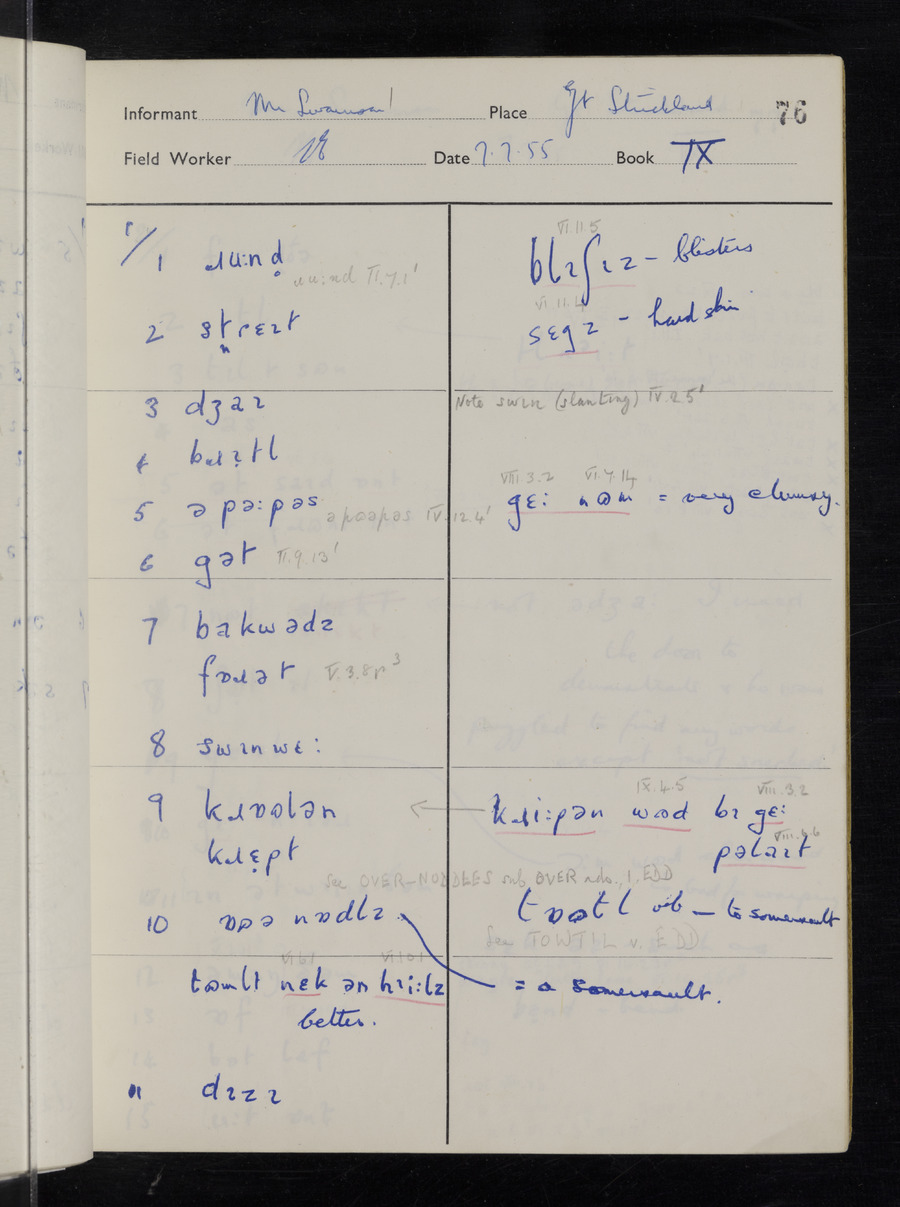 Informant Mr Swainson Place Gt Strickland 76
Field Worker Date 7.7.55 Book IX
1/1 ɹuːnd̥
ɹuːnd II.7.1'
2 stɹɛɪt
3 dʒaɪ
4 bɹɪstl
5 əpəːpəs
əpoəpəs IV.12.4'
6 gət II.9.13'
7 bakwədz
fɒɹət V.3.8p³
8 swɪnwɛː
9 kɹɒələn
kɹɛpt
See OVER-NODDLES sub OVER adv., 1. EDD
10 ɒʊə nɒdlz
VI.6.1
tʊmlt nɛk ən hɪiːlz
better.
11 dɪzɪ
VI.11.5
blɪʃɪz – blisters
VI.11.4
sɛgz – hard skin
Note swɪn (slanting) IV.2.5'
VIII.3.2 VI.7.14
gɛː nʊm = very clumsy.
IX.4.5 VIII.3.2
kɹiːpən wʊd bɪ gɛː
pəlaɪt
tɒʊtl vb – to somersault
See TOWTIL v. EDD
= a somersault.